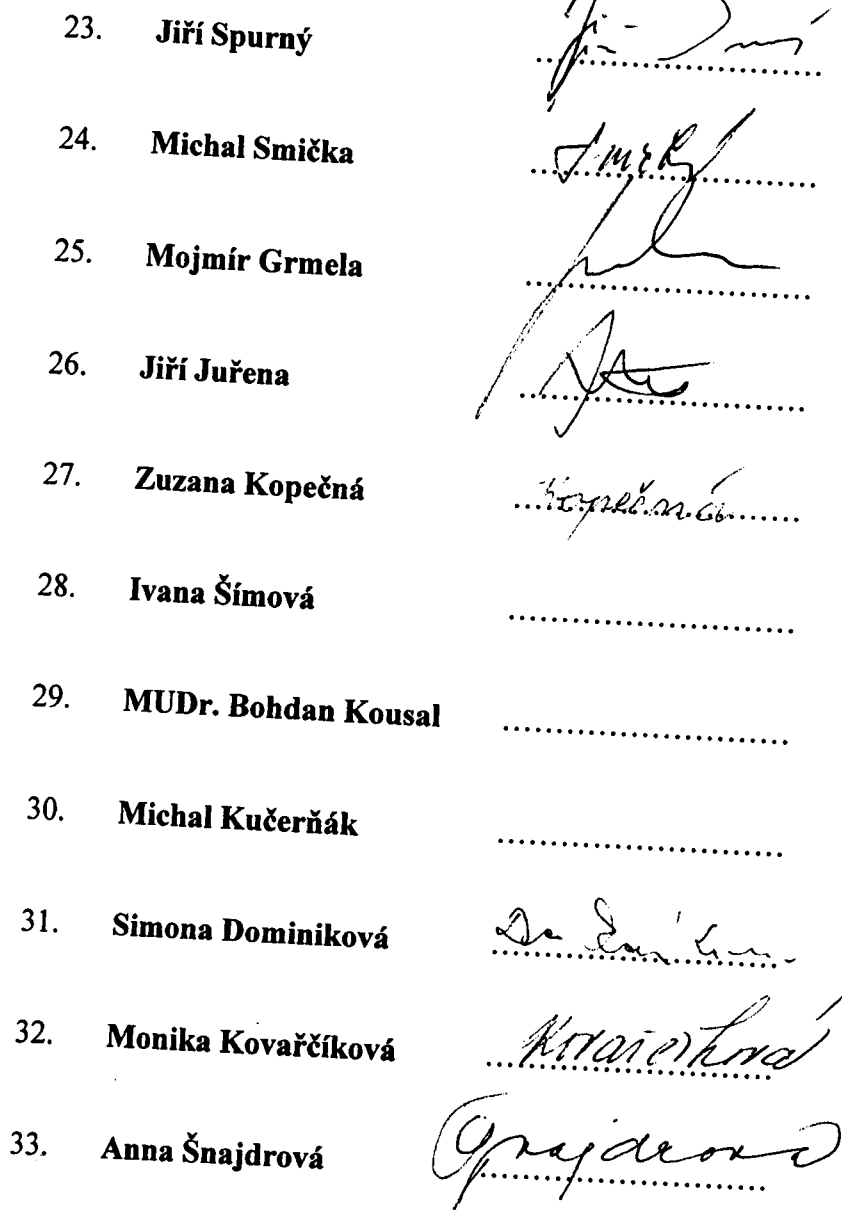 23. Jiří Spurný
24. Michal Smička
25. Mojmír Grmela
26. Jiří Juřena
27. Zuzana Kopečná ....Kopečná....
28. Ivana Šímová ...........................
29. MUDr. Bohdan Kousal ...........................
30. Michal Kučerňák ...........................
31. Simona Dominiková
32. Monika Kovařčíková
33. Anna Šnajdrová Šnajdrová